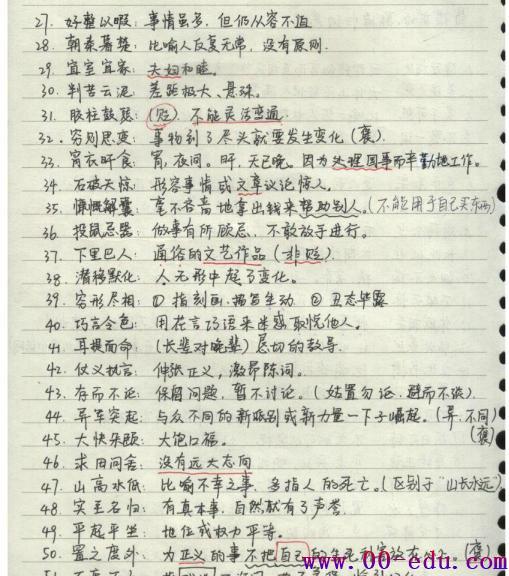 27. 好整以暇: 事情虽多, 但仍从容不迫
28. 朝秦暮楚: 比喻人反复无常, 没有原则.
29. 宜室宜家: 夫妇和睦.
30. 判若云泥: 差距极大、悬殊.
31. 胶柱鼓瑟: (贬) 不能灵活变通.
32. 穷则思变: 事物到了尽头就要发生变化 (褒).
33. 宵衣旰食: 宵, 夜间。旰, 天已晚。因为处理国事而辛勤地工作。
34. 石破天惊: 形容事情或文章议论惊人。
35. 慷慨解囊: 毫不吝啬地拿出钱来帮助别人。(不能用于自己买东西)
36. 投鼠忌器: 做事有所顾忌, 不敢放手进行。
37. 下里巴人: 通俗的文艺作品 (非贬).
38. 潜移默化: 人无形中起了变化。
39. 穷形尽相: ① 指刻画、描写生动 ② 丑态毕露
40. 巧言令色: 用花言巧语来迷惑、取悦他人。
41. 耳提面命: (长辈对晚辈) 恳切的教导.
42. 仗义执言: 伸张正义, 激昂陈词。
43. 存而不论: 保留问题, 暂不讨论。( 姑置勿论、避而不谈).
44. 异军突起: 与众不同的新派别或新力量一下子崛起。(异: 不同)
45. 大快朵颐: 大饱口福。 (褒)
46. 求田问舍: 没有远大志向
47. 山高水低: 比喻不幸之事, 多指人的死亡。(区别于"山长水远")
48. 实至名归: 有真本事, 自然就有了声誉.
49. 平起平坐: 地位或权力平等。
50. 置之度外: 为正义的事不把自己的生死利害放在心上。(褒)
www.00-edu.com